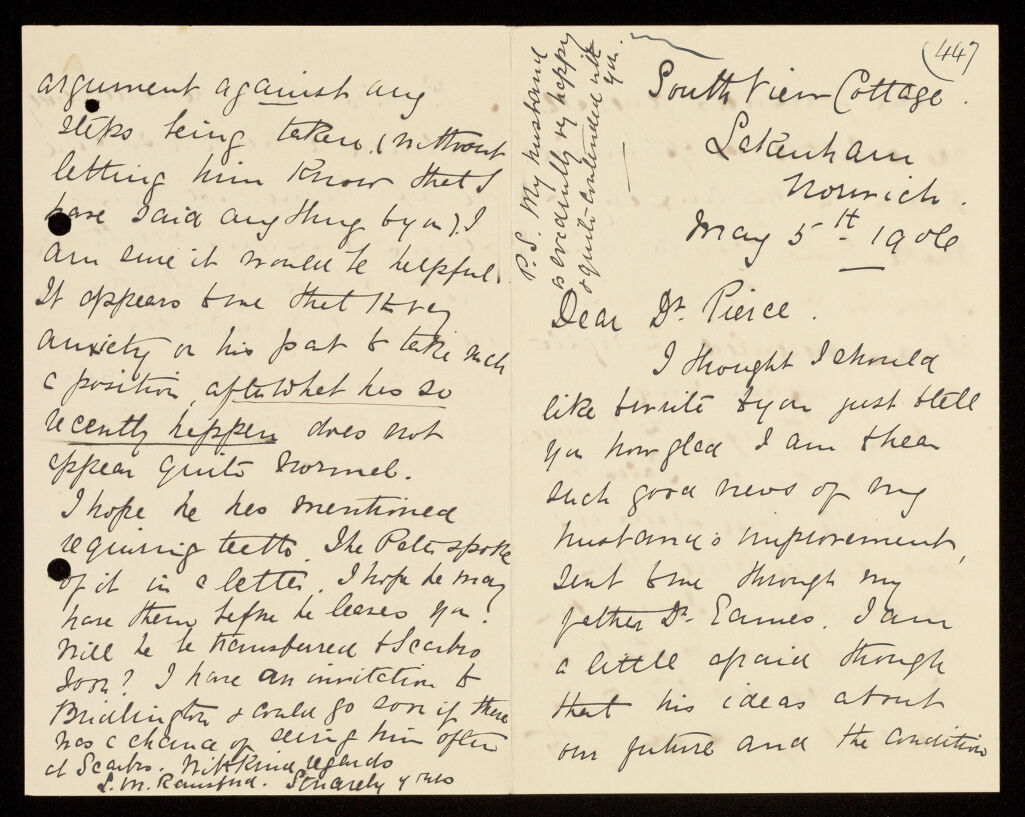 (447
South View Cottage.
Lakenham
Norwich.
May 5th 1906
Dear Dr. Pierce.
I thought I should
like to write to you just to tell
you how glad I am to hear
such good news of my
husband's improvement,
sent to me through my
father Dr. Eames. I am
a little afraid though
that his ideas about
our future and the condition
P.S. My husband
is evidently vy happy
& quite contented with
you.
argument against any
steps being taken. (Without
letting him know that I
have said anything to you). I
am sure it would be helpful.
It appears to me that the very
anxiety on his part to take such
a position, after what has so
recently happen does not
appear quite normal.
I hope he has mentioned
requiring teeth. The Pater spoke
of it in a letter. I hope he may
have them before he leaves you.
Will he be transferred to Scarbro
soon? I have an invitation to
Bridlington & could go soon if there
was a chance of seeing him often
at Scarbro. With kind regards
L. M. Ransford. Sincerely yours